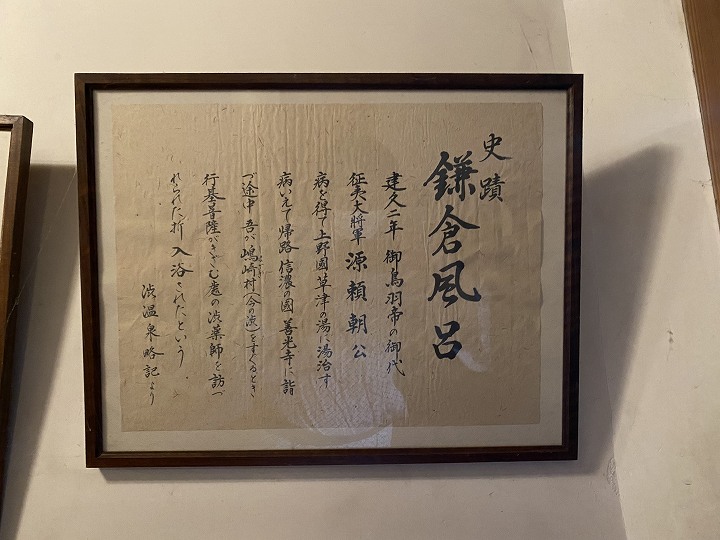 史蹟
鎌倉風呂
建久二年 御鳥羽帝の御代
征夷大将軍 源頼朝公
病を得て上野國草津の湯に湯治す
病いえて帰路 信濃の國 善光寺に詣
づ途中 吾が嶋崎村(今の渋)をすぐるとき
行基菩薩がきざむ處の渋薬師を訪づ
れられた折 入浴されたという
渋温泉略記より